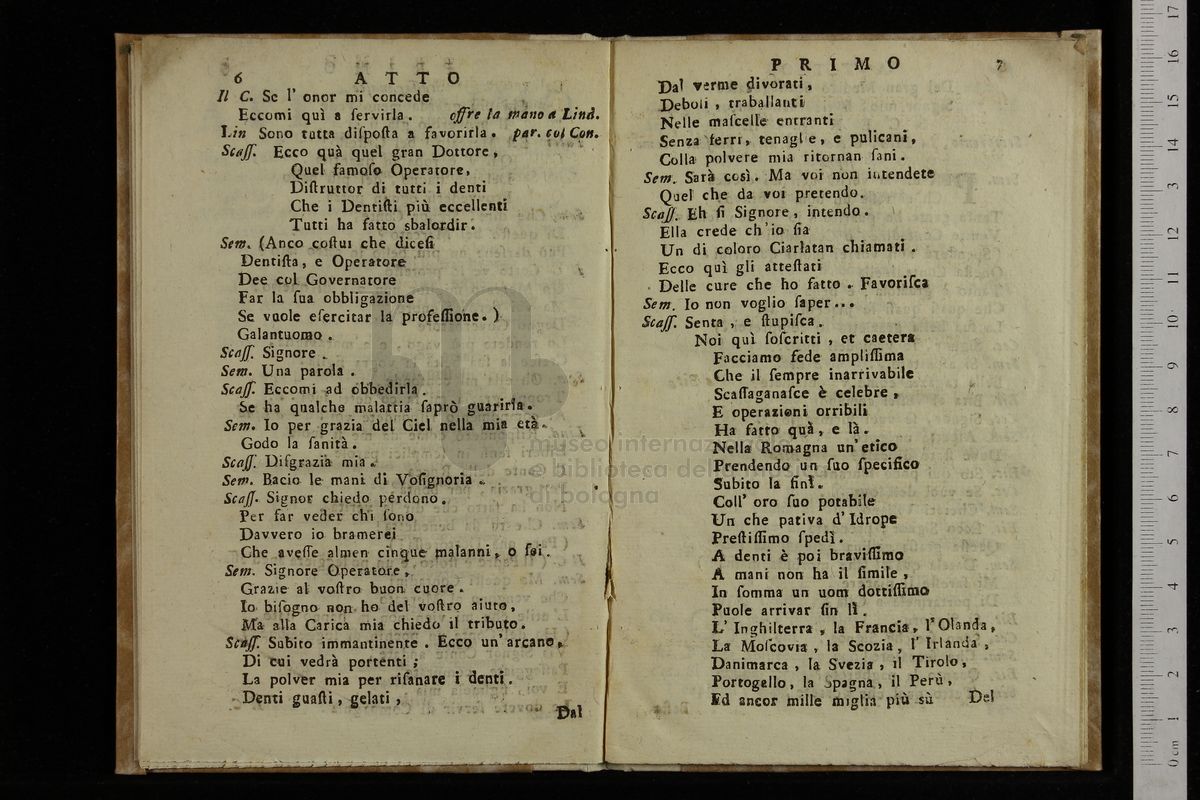 6 ATTO
Il C. Se l' onor mi concede
Eccomi quì a servirla. offre la mano a Lind.
Lin Sono tutta diſpoſta a favorirla. par. col Con.
Scaſſ. Ecco quà quel gran Dottore,
Quel famoſo Operatore,
Diſtruttor di tutti i denti
Che i Dentiſti più eccellenti
Tutti ha fatto sbalordir.
Sem. (Anco coſtui che diceſi
Dentiſta, e Operatore
Dee col Governatore
Far la ſua obbligazione
Se vuole eſercitar la profeſſione. )
Galantuomo.
Scaſſ. Signore.
Sem. Una parola.
Scaſſ. Eccomi ad obbedirla.
Se ha qualche malattia ſaprò guarirla.
Sem. Io per grazia del Ciel nella mia età
Godo la ſanità.
Scaſſ. Diſgrazia mia.
Sem. Bacio le mani di Voſignoria.
Scaſſ. Signor chiedo perdono.
Per far veder chi ſono
Davvero io bramerei
Che aveſſe almen cinque malanni, o ſei.
Sem. Signore Operatore,
Grazie al voſtro buon cuore.
Io biſogno non ho del voſtro aiuto,
Ma alla Carica mia chiedo il tributo.
Scaſſ. Subito immantinente. Ecco un' arcano,
Di cui vedrà portenti;
La polver mia per riſanare i denti.
Denti guaſti, gelati,
Dal
PRIMO 7
Dal verme divorati,
Deboli, traballanti
Nelle maſcelle entranti
Senza ferri, tenaglie, e pulicani,
Colla polvere mia ritornan ſani.
Sem. Sarà così. Ma voi non intendete
Quel che da voi pretendo.
Scaſſ. Eh ſi Signore, intendo.
Ella crede ch'io ſia
Un di coloro Ciarlatan chiamati.
Ecco quì gli atteſtati
Delle cure che ho fatto. Favoriſca
Sem. Io non voglio ſaper...
Scaſſ. Senta, e ſtupiſca.
Noi quì ſoſcritti, et caetera
Facciamo fede ampliſſima
Che il ſempre inarrivabile
Scaſſaganaſce è celebre,
E operazioni orribili
Ha fatto quà, e là.
Nella Romagna un'etico
Prendendo un ſuo ſpecifico
Subito la finì.
Coll' oro ſuo potabile
Un che pativa d' Idrope
Preſtiſſimo ſpedì.
A denti è poi braviſſimo
A mani non ha il ſimile,
In ſomma un uom dottiſſimo
Puole arrivar ſin lì.
L' Inghilterra, la Francia, l'Olanda,
La Moſcovia, la Scozia, l' Irlanda,
Danimarca, la Svezia, il Tirolo,
Portogello, la Spagna, il Perù,
Ed ancor mille miglia più sù
Del
museo internazionale
e biblioteca della musica
di bologna
0 cm 1 2 3 4 5 6 7 8 9 10 11 12 13 14 15 16 17